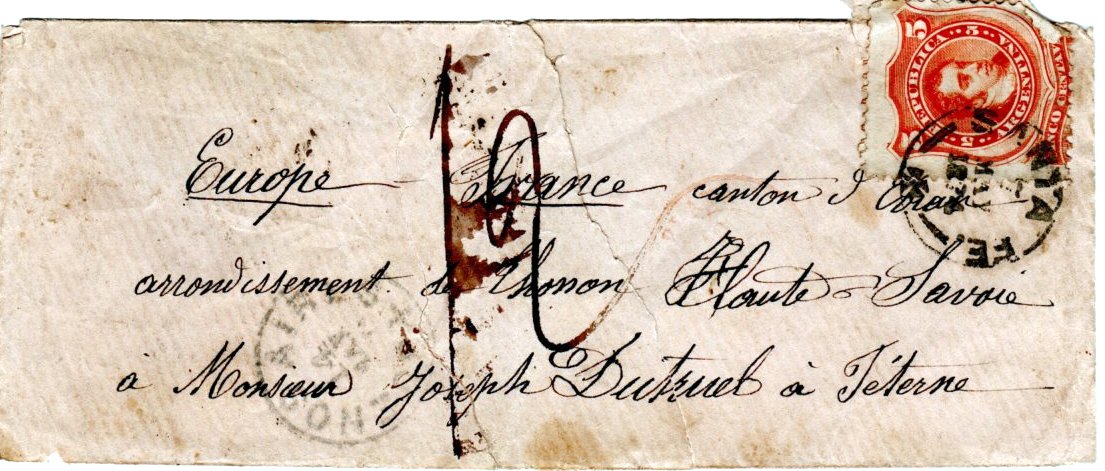 REPUBLICA ARGENTINA
5 5
5
CINCO CENTAV
SANTA FE
Europe - France canton d'Evian
arrondissement de Thonon Haute-Savoie
à Monsieur Joseph Dutruel à Féterne